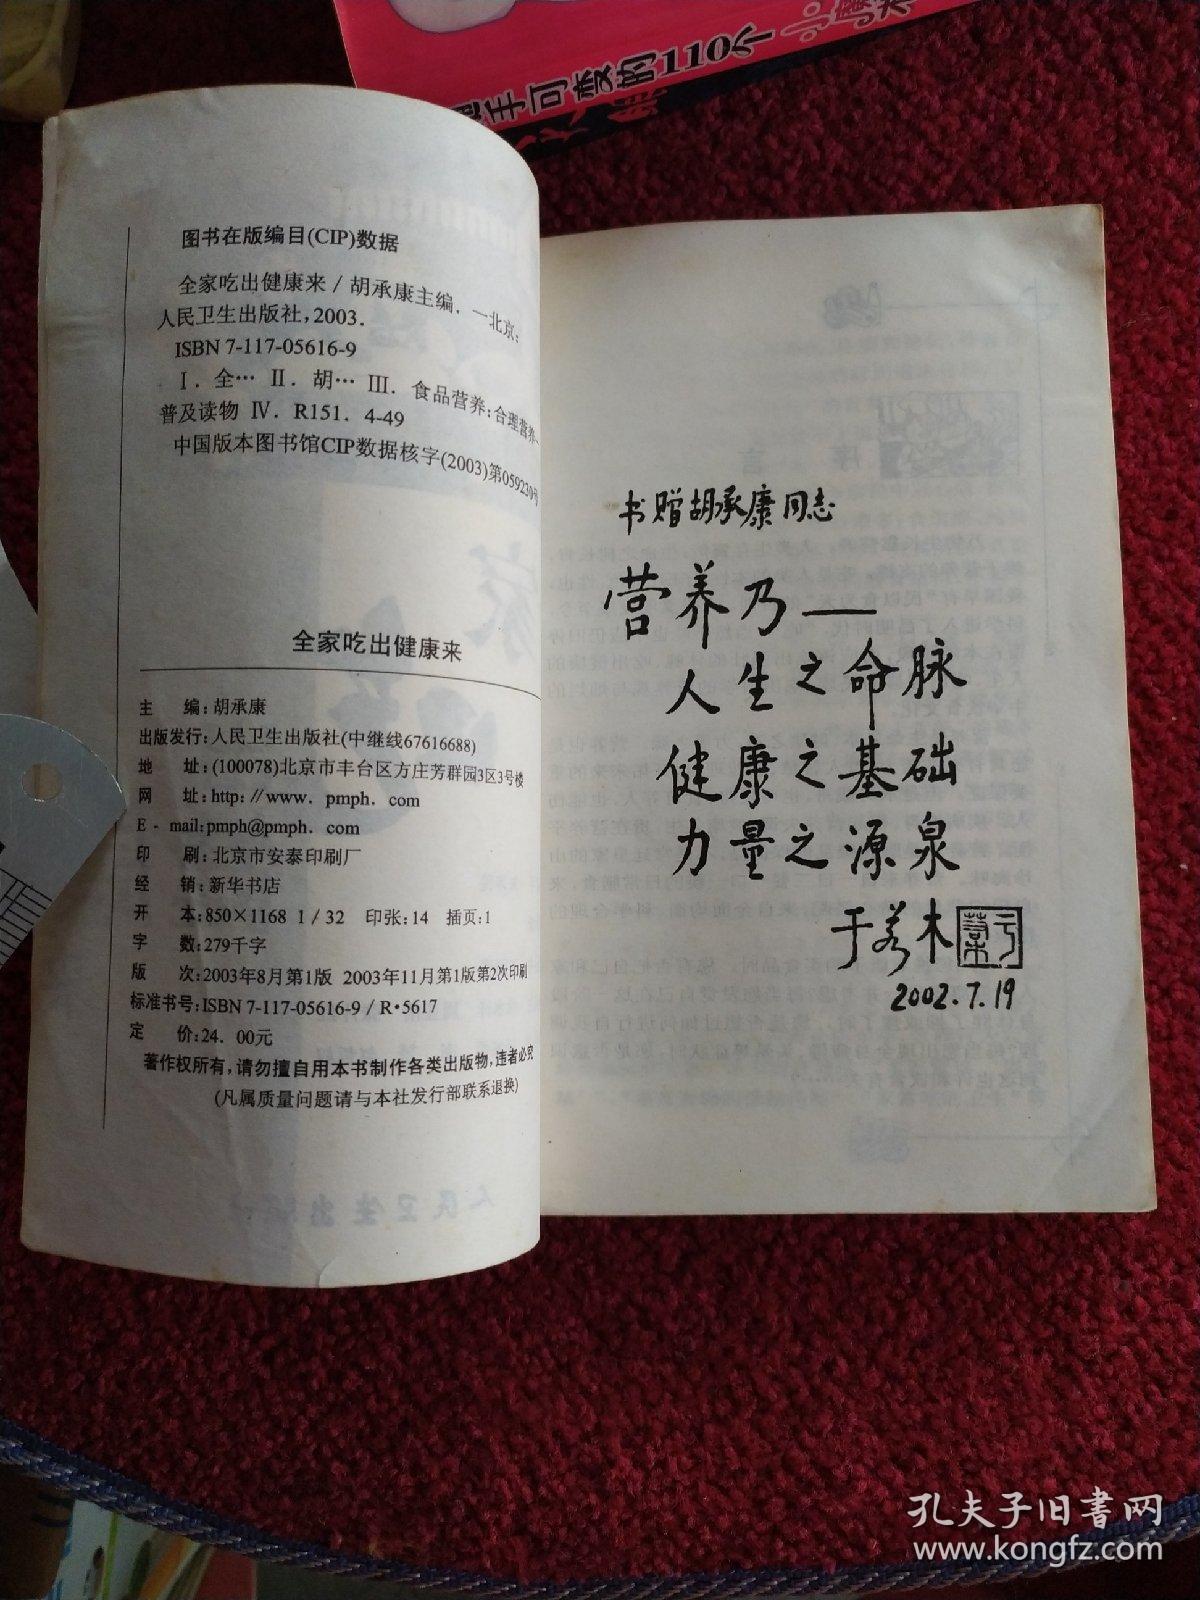 手可做的110个
图书在版编目(CIP)数据
全家吃出健康来/胡承康主编.—北京:
人民卫生出版社,2003.
ISBN 7-117-05616-9
Ⅰ.全… Ⅱ.胡… Ⅲ.食品营养:合理营养-
普及读物 Ⅳ.R151.4-49
中国版本图书馆CIP数据核字(2003)第059230号
全家吃出健康来
主 编:胡承康
出版发行:人民卫生出版社(中继线67616688)
地 址:(100078)北京市丰台区方庄芳群园3区3号楼
网 址:http://www.pmph.com
E-mail:pmph@pmph.com
印 刷:北京市安泰印刷厂
经 销:新华书店
开 本:850×1168 1/32 印张:14 插页:1
字 数:279千字
版 次:2003年8月第1版 2003年11月第1版第2次印刷
标准书号:ISBN 7-117-05616-9/R·5617
定 价:24.00元
著作权所有,请勿擅自用本书制作各类出版物,违者必究
(凡属质量问题请与本社发行部联系退换)
书赠胡承康同志
营养乃——
人生之命脉
健康之基础
力量之源泉
于若木
2002.7.19
孔夫子旧书网
www.kongfz.com